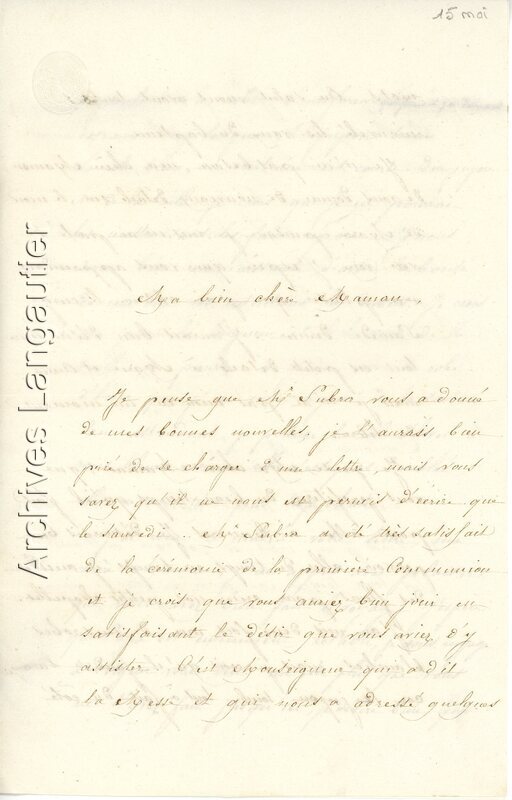 15 mai
Ma bien chère Maman,
Je pense que Mr Pubro vous a donné
de mes bonnes nouvelles. je l'aurais bien
prié de se charger d'une lettre, mais vous
savez qu'il ne nous est permis d'écrire que
le samedi. Mr Pubra a été très satisfait
de la cérémonie de la première Communion
et je crois que vous auriez bien joui en
satisfaisant le désir que vous aviez d'y
assister. C'est Monseigneur qui a dit
la Messe et qui nous a adressé quelques
Archives Langautier